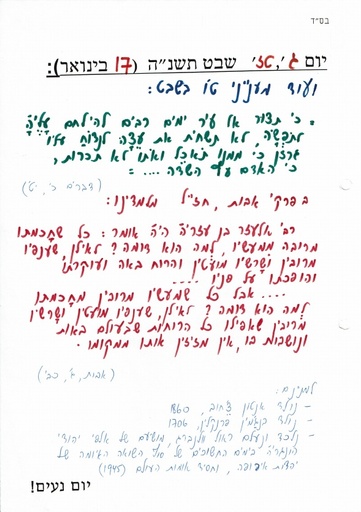 בס״ד
יום ג׳, טז׳ שבט תשנ״ה (17 בינואר):
ועוד מעניני ט״ו בשבט:
= כי תצור אל עיר ימים רבים להילחם עליה
לתפשה, לא תשחית את עצה לנדוח עליו
גרזן כי ממנו תאכל ואותו לא תכרות,
כי האדם עץ השדה .... =
(דברים כ׳, יט׳)
בפרקי אבות, חז״ל מלמדינו:
רבי אלעזר בן עזריה היה אומר: כל שחכמתו
מרובה ממעשיו, למה הוא דומה? לאילן, שענפיו
מרובין ושרשיו מועטין והרוח באה ועוקרתו
והופכתו על פניו ....
.... אבל כל שמעשיו מרובין מחכמתו
למה הוא דומה? לאילן, שענפיו מועטין ושרשיו
מרובין שאפילו כל הרוחות שבעולם באות
ונושבות בו, אין מזיזין אותו ממקומו.
(אבות, ג׳, כב׳)
למנינם:
– נולד אנטון צ׳כוב, 1860
– נולד בנג׳מין פרנקלין, 1706
– נלכד ונעלם ראול ולנברג, מושיעם של אלפי יהודי
הונגריה בימים החשוכים של סוף השואה האיומה של
יהדות אירופה, וחסיד אומות העולם (1945)
יום נעים!